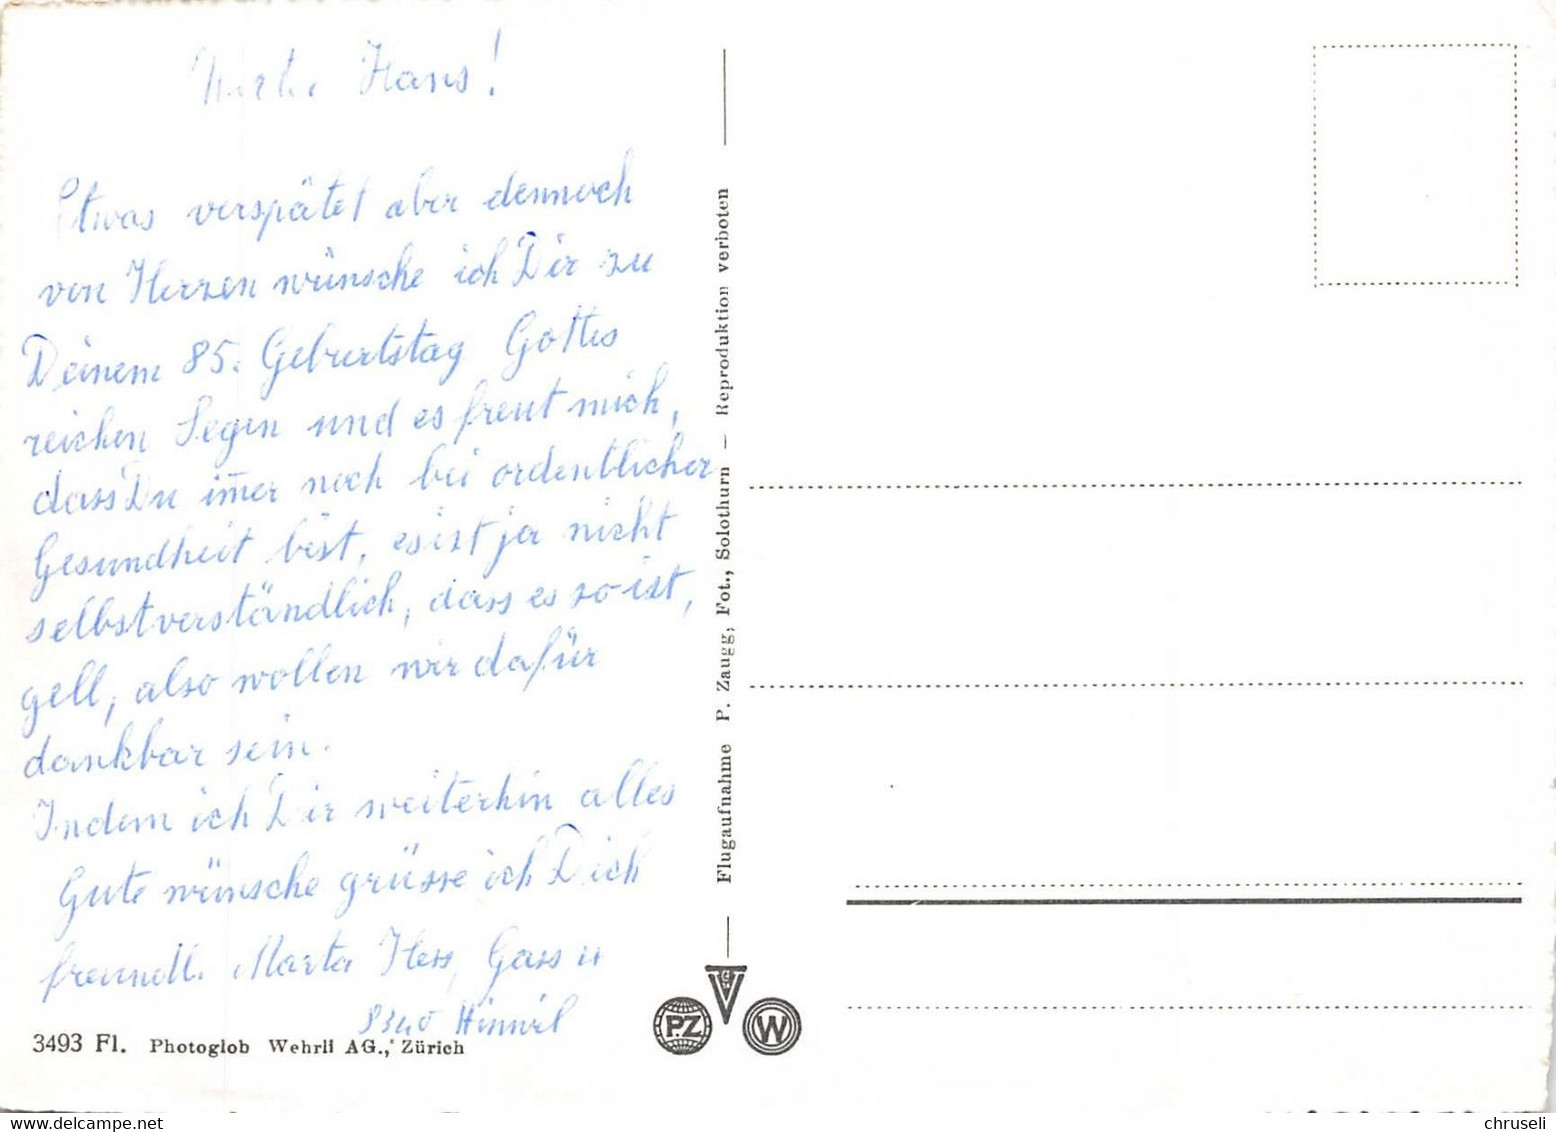 Hans!
Etwas verspätet aber dennoch
von Herzen wünsche ich Dir zu
Deinem 85. Geburtstag Gottes
reichen Segen und es freut mich,
dass Du im̅er noch bei ordentlicher
Gesundheit bist, es ist ja nicht
selbstverständlich, dass es so ist,
gell, also wollen wir dafür
dankbar sein.
Indem ich Dir weiterhin alles
Gute wünsche grüsse ich Dich
freundl. Marta Hess, Gass
8340 Hinwil
3493 Fl. Photoglob Wehrli AG., Zürich
Flugaufnahme P. Zaugg, Fot., Solothurn — Reproduktion verboten
PZ
V
W
chruseli